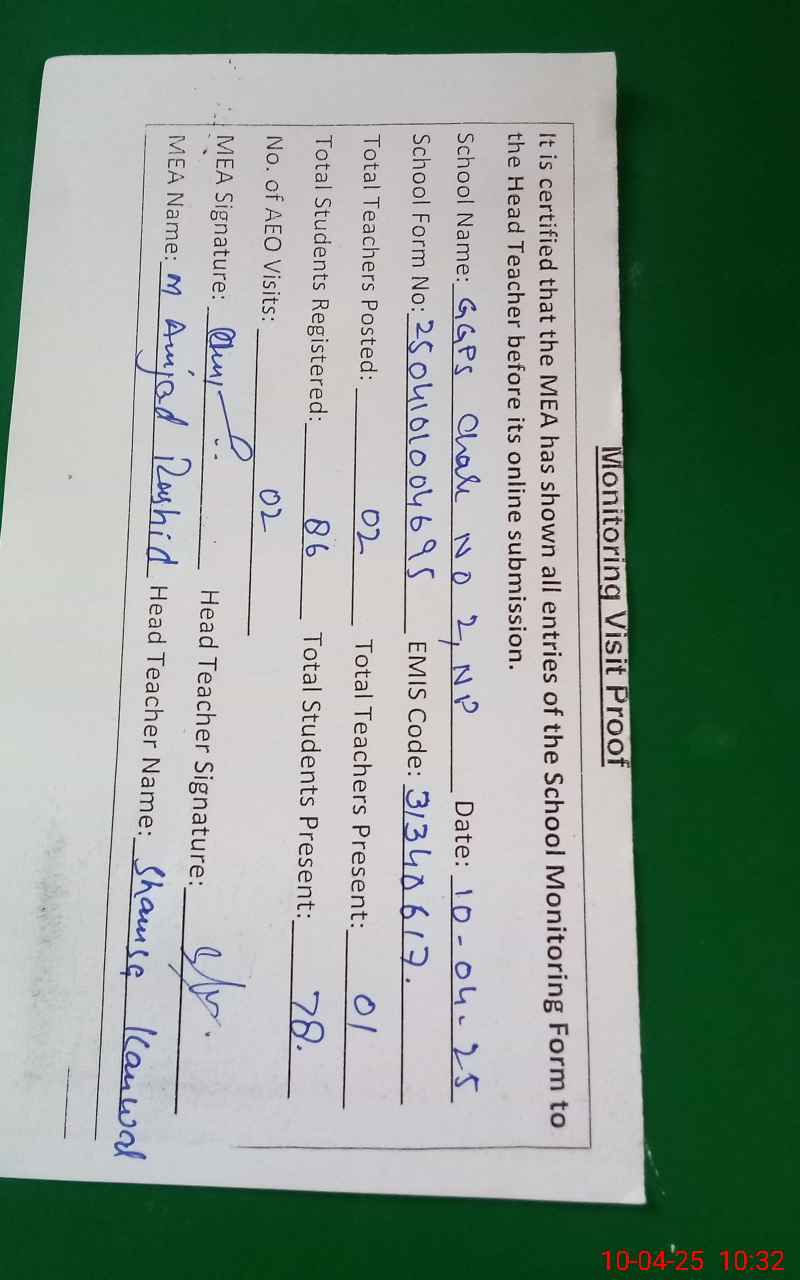 Monitoring Visit Proof
It is certified that the MEA has shown all entries of the School Monitoring Form to
the Head Teacher before its online submission.
School Name: GGPS Chak NO 2, NP Date: 10-04-25
School Form No: 2504101004695 EMIS Code: 31340617.
Total Teachers Posted: 02 Total Teachers Present: 01
Total Students Registered: 86 Total Students Present: 78.
No. of AEO Visits: 02
MEA Signature: Head Teacher Signature:
MEA Name: M Amjad Rashid Head Teacher Name: Shamsa Kanwal
10-04-25 10:32